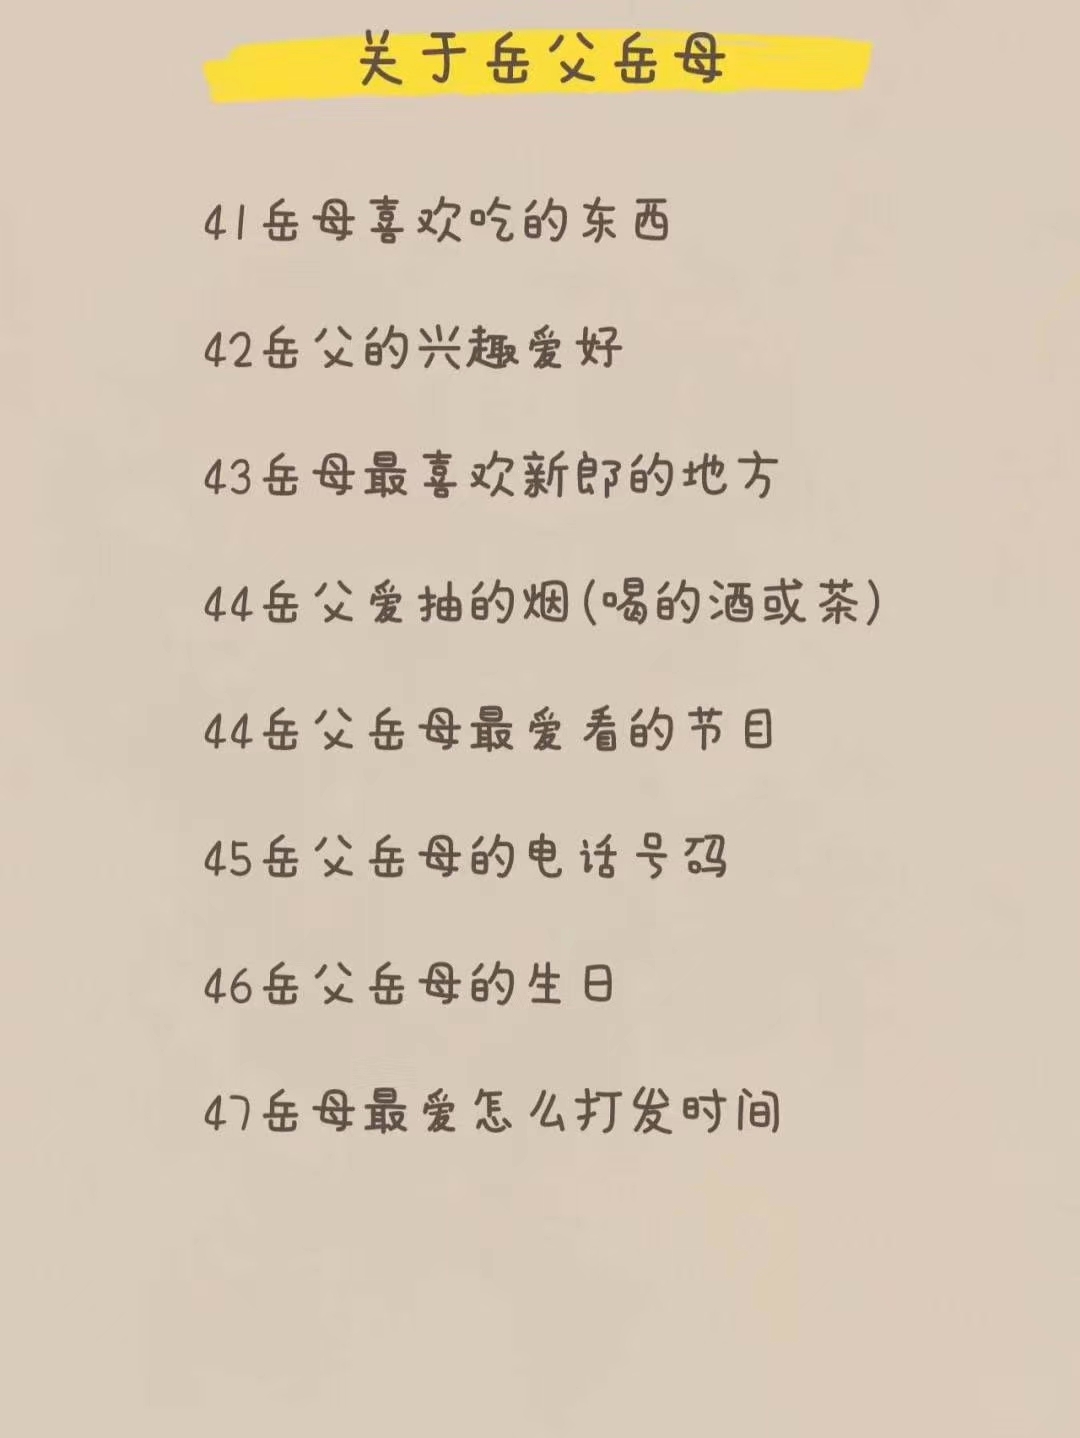 关于岳父岳母
41岳母喜欢吃的东西
42岳父的兴趣爱好
43岳母最喜欢新郎的地方
44岳父爱抽的烟(喝的酒或茶)
44岳父岳母最爱看的节目
45岳父岳母的电话号码
46岳父岳母的生日
47岳母最爱怎么打发时间